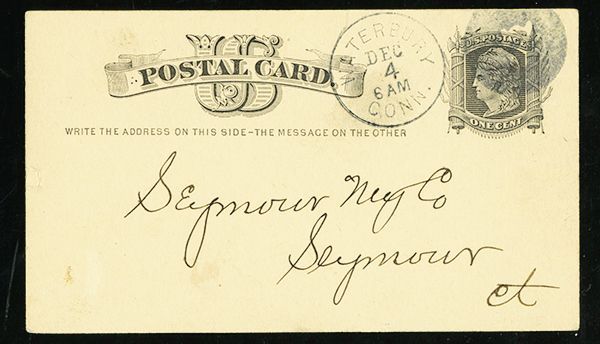 US
POSTAL CARD.
WATERBURY
DEC
4
6 AM
CONN.
U.S. POSTAGE
ONE CENT
WRITE THE ADDRESS ON THIS SIDE-THE MESSAGE ON THE OTHER
Seymour Mfg Co
Seymour
Ct